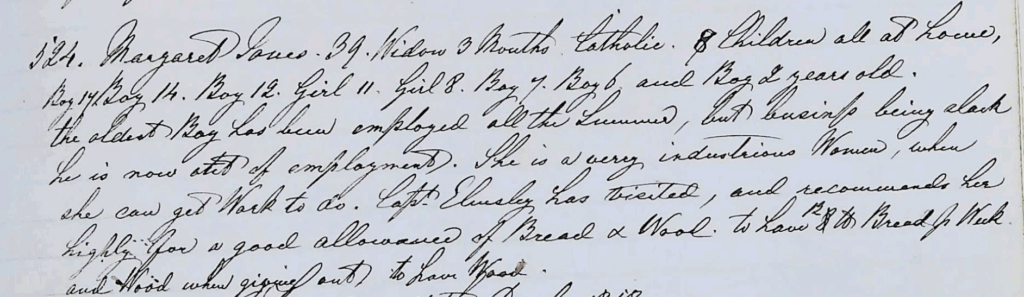 524. Margaret Jones. 39. Widow 3 Months. Catholic. 8 Children all at home,
Boy 17. Boy 14. Boy 12. Girl 11. Girl 8. Boy 7. Boy 6, and Boy 2 years old.
the oldest Boy has been employed all the Summer, but business being slack
he is now out of employment. She is a very industrious Women, when
she can get Work to do. Capt. Elmsley has visited, and recommends her
highly for a good allowance of Bread & Wood. to have 12 8 lb Bread p Week.
and Wood when giving out, to have Wood.